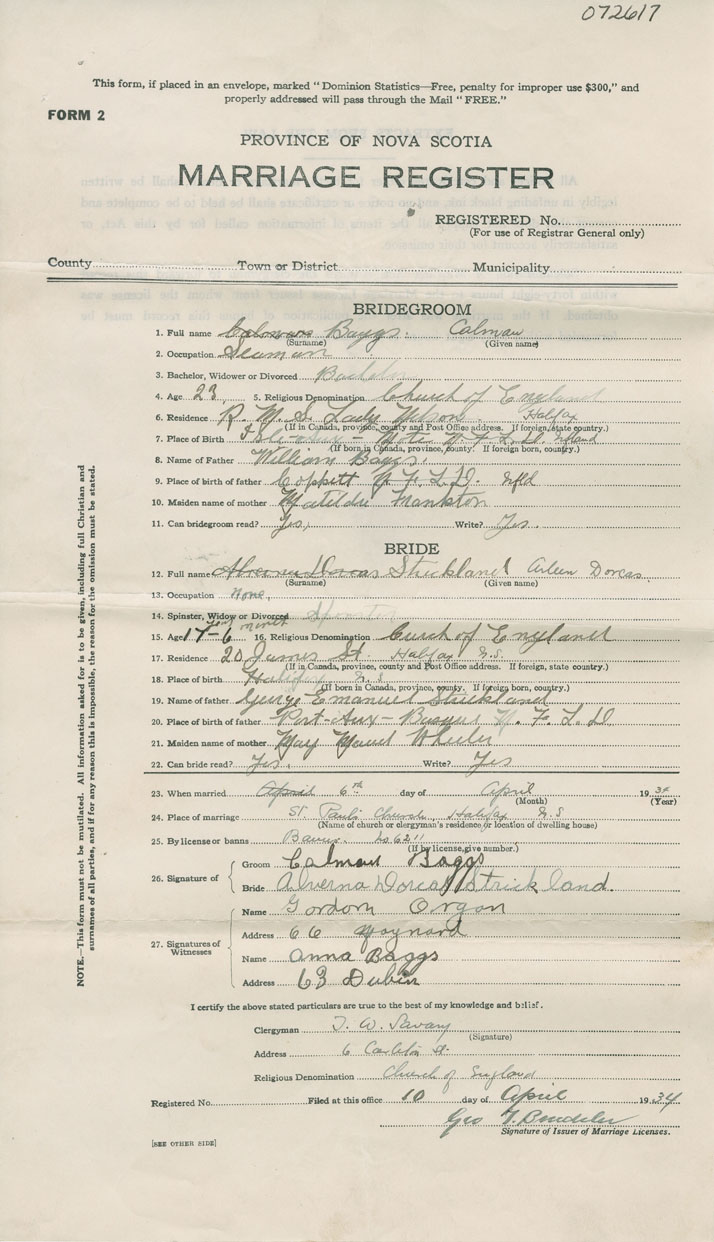 072617
This form, if placed in an envelope, marked "Dominion Statistics—Free, penalty for improper use $300," and
properly addressed will pass through the Mail "FREE."
FORM 2
PROVINCE OF NOVA SCOTIA
MARRIAGE REGISTER
REGISTERED No.
(For use of Registrar General only)
County Town or District Municipality
BRIDEGROOM
1. Full name Baggs Calman
(Surname) (Given name)
2. Occupation Seaman
3. Bachelor, Widower or Divorced Bachelor
4. Age 23 5. Religious Denomination Church of England
6. Residence R. M. S. Lady Nelson Halfax
(If in Canada, province, county and Post Office address. If foreign, state country.)
7. Place of Birth N. F. L. D. Nfland
(If born in Canada, province, county. If foreign born, country.)
8. Name of Father William Baggs
9. Place of birth of father N F L D. Nfld
10. Maiden name of mother Matilda
11. Can bridegroom read? Yes, Write? Yes.
BRIDE
12. Full name Dorcas Strickland Aileen Dorcas
(Surname) (Given name)
13. Occupation None,
14. Spinster, Widow or Divorced Spinster
15. Age 17-6 month 16. Religious Denomination Curch of England
17. Residence 20 James St. Halifax N.S.
(If in Canada, province, county and Post Office address. If foreign, state country.)
18. Place of birth Halifax N. S.
(If born in Canada, province, county. If foreign born, country.)
19. Name of father George Emanuel Strickland
20. Place of birth of father Port-Aux- N. F. L D
21. Maiden name of mother May Maud Wheeler
22. Can bride read? Yes, Write? Yes
23. When married April 6th day of April 1934
(Month) (Year)
24. Place of marriage St Paul's Church, Halifax N.S
(Name of church or clergyman's residence or location of dwelling house)
25. By license or banns Banns.
(If by license, give number.)
26. Signature of
Groom Calman Baggs
Bride Alverna Dorcas Strickland.
27. Signatures of Witnesses
Name Gordon Organ
Address 66 Maynard
Name Anna Baggs
Address 63 Dublin
I certify the above stated particulars are true to the best of my knowledge and belief.
Clergyman T. W. Savary
(Signature)
Address 6 Carleton St.
Religious Denomination Church of England
Registered No. Filed at this office 10 day of April 1934
Geo
Signature of Issuer of Marriage Licenses.
[SEE OTHER SIDE]
NOTE.—This form must not be mutilated. All information asked for is to be given, including full Christian and
surnames of all parties, and if for any reason this is impossible, the reason for the omission must be stated.